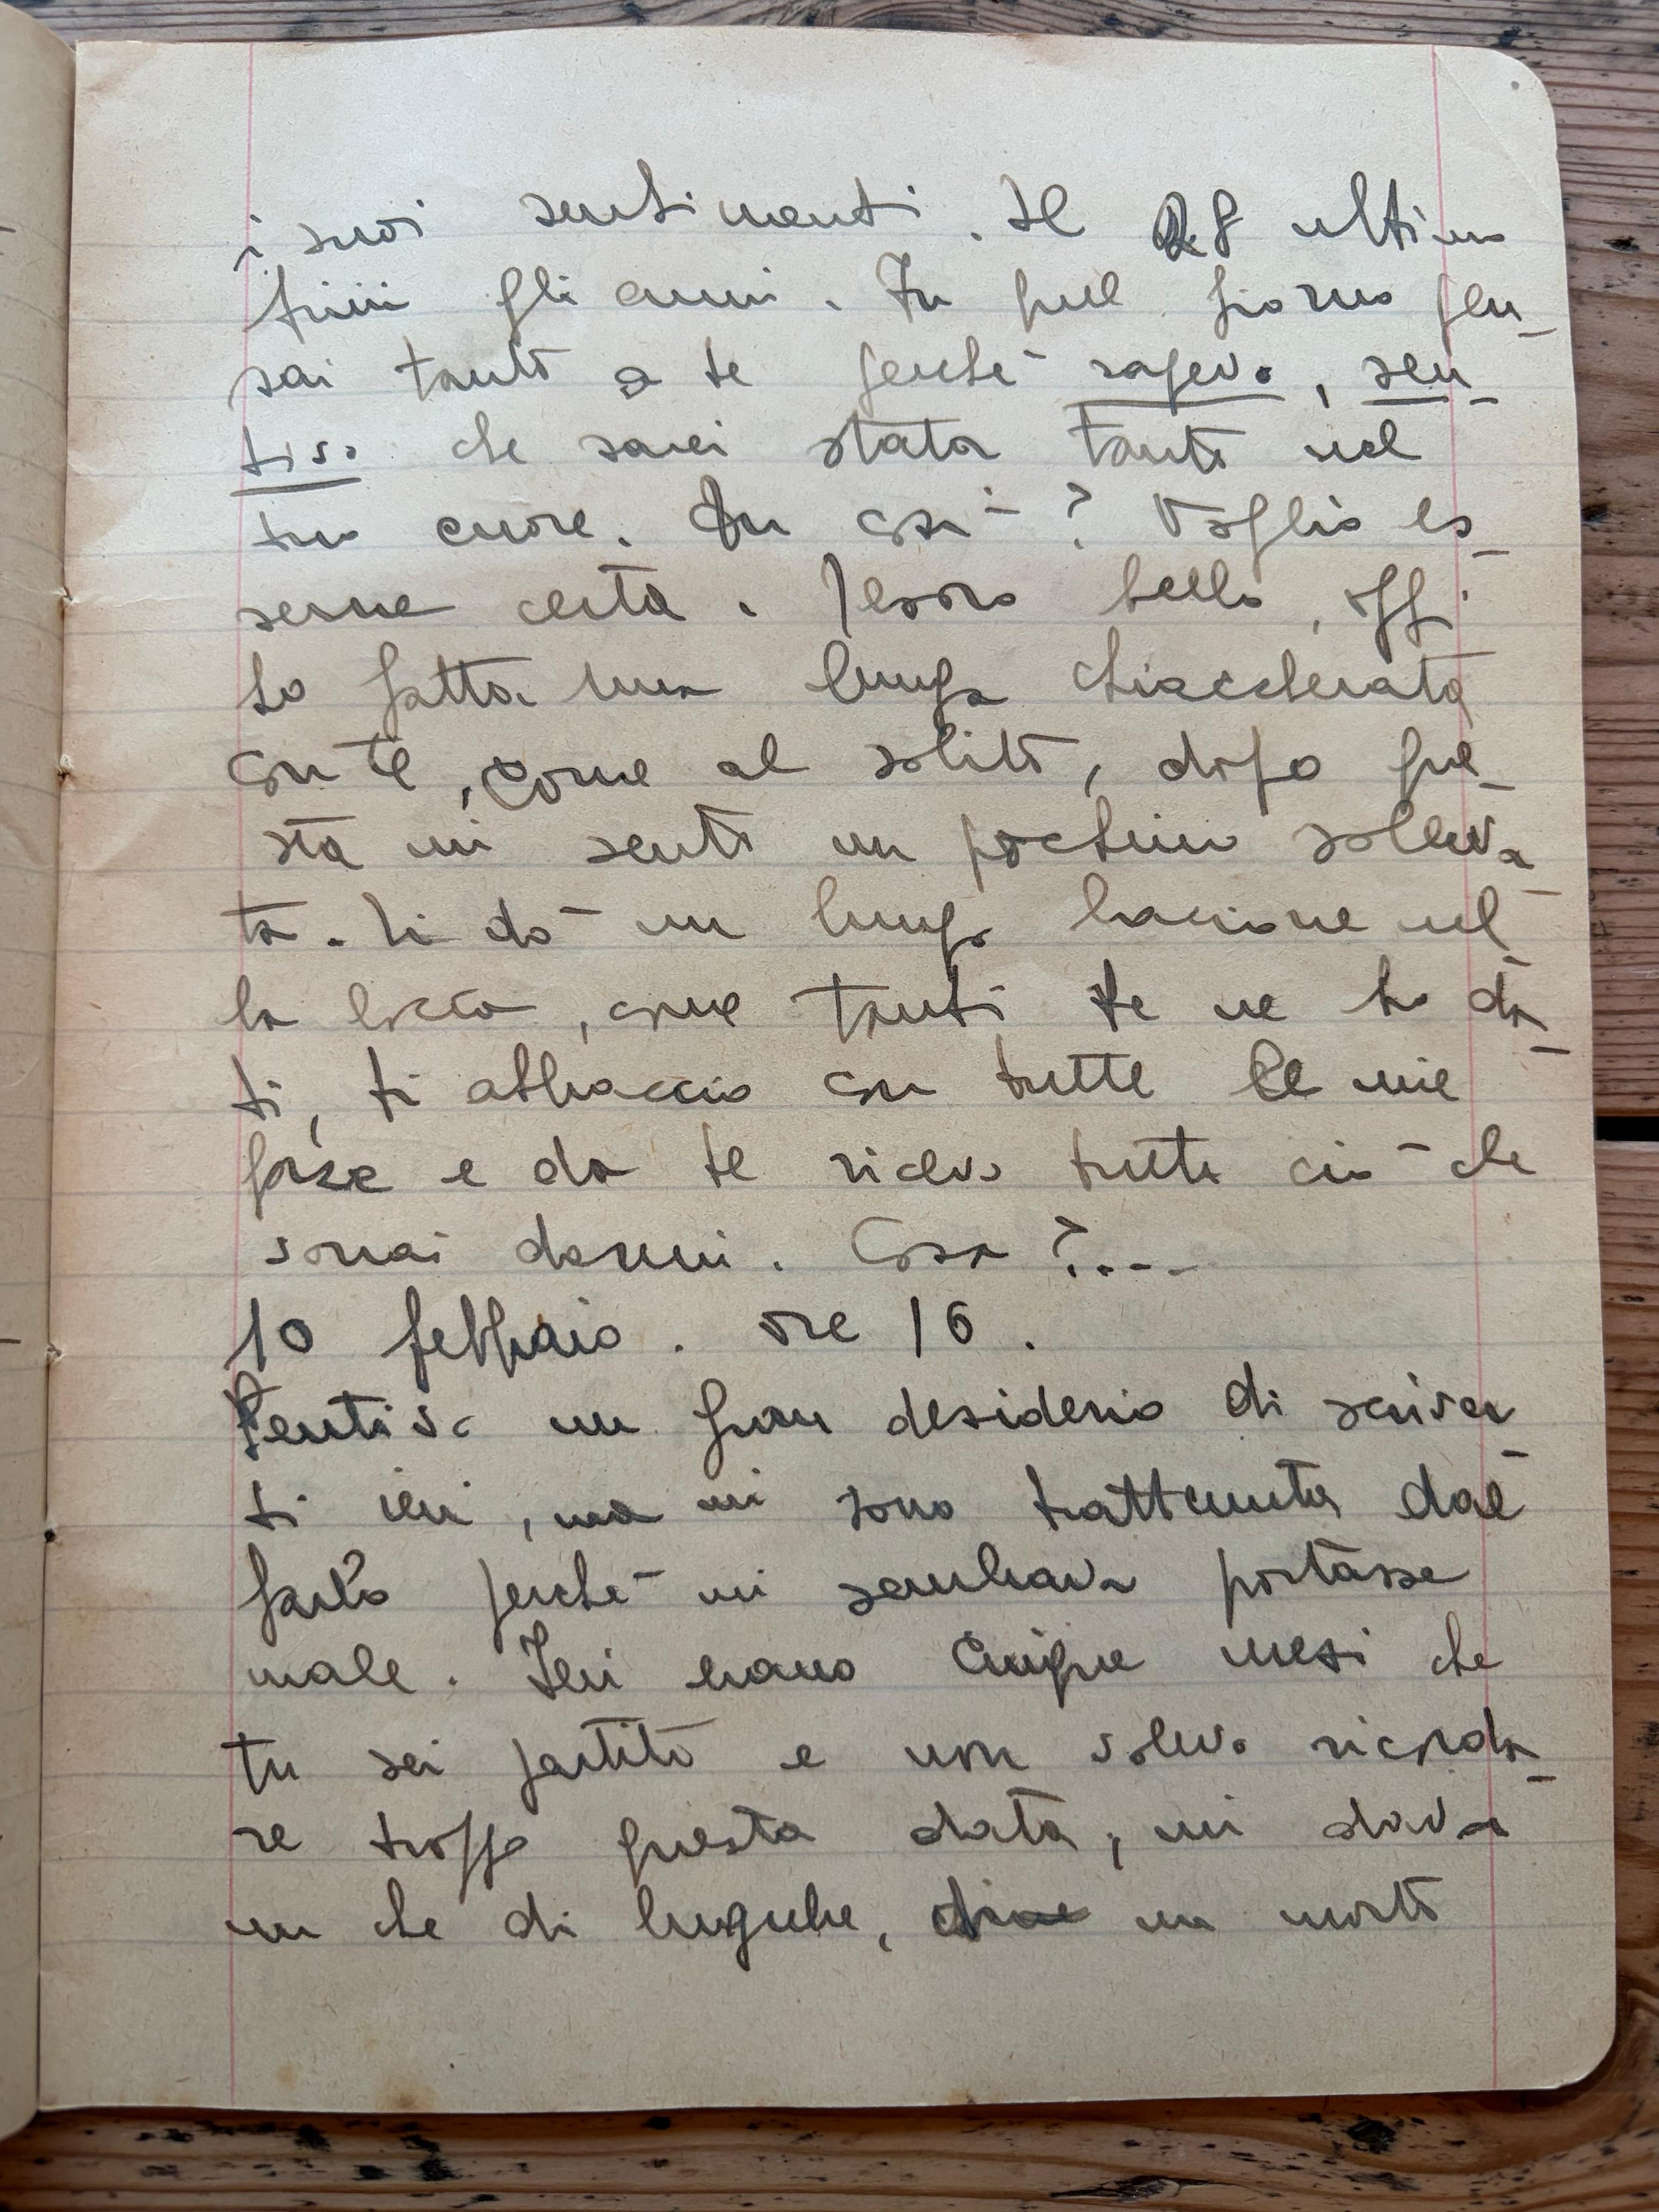 i suoi sentimenti. Il 28 ultimo
finii gli anni. In quel giorno pen_
sai tanto a te perché sapevo, sen_
tivo che sarei stata tanto nel
tuo cuore. Fu così? Voglio es_
serne certa. Tesoro bello, oggi
ho fatta una lunga chiaccherata
con te, come al solito, dopo que_
sta mi sento un pochino solleva_
ta. Ti dò un lungo bacione nel_
la bocca, come tanti te ne ho da_
ti, ti abbraccio con tutte le mie
forze e da te ricevo tutto ciò che
vorrai darmi. Cosa?....
10 febbraio. ore 16.
Sentivo un gran desiderio di scriver_
ti ieri, ma mi sono trattenuta dal
farlo perché mi sembrava portasse
male. Ieri erano cinque mesi che
tu sei partito e non volevo ricorda_
re troppo questa data, mi dava
un che di lugubre, un morto